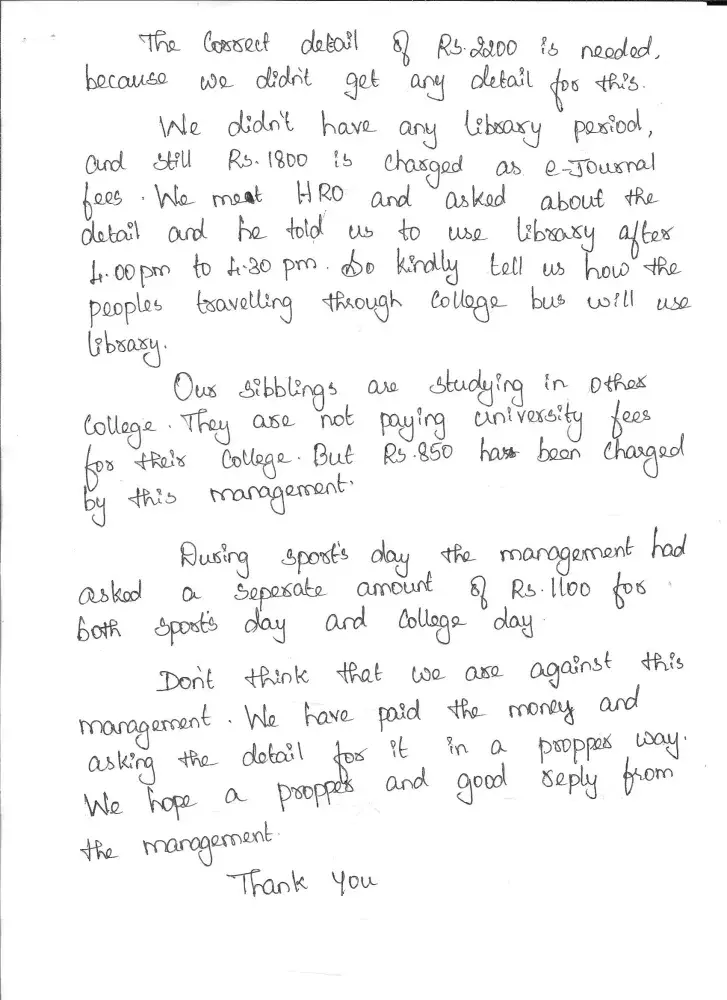 The Correct detail of Rs.2200 is needed,
because we didn't get any detail for this.
We didn't have any library period,
and still Rs.1800 is charged as e-Journal
fees. We meet HRO and asked about the
detail and he told us to use library after
4.00pm to 4.30 pm. So kindly tell us how the
peoples travelling through College bus will use
library.
Our sibblings are studying in other
College. They are not paying university fees
for their College. But Rs.850 has been charged
by this management.
During sport's day the management had
asked a seperate amount of Rs.1100 for
both sport's day and College day.
Don't think that we are against this
management. We have paid the money and
asking the detail for it in a propper way.
We hope a propper and good reply from
the management.
Thank You